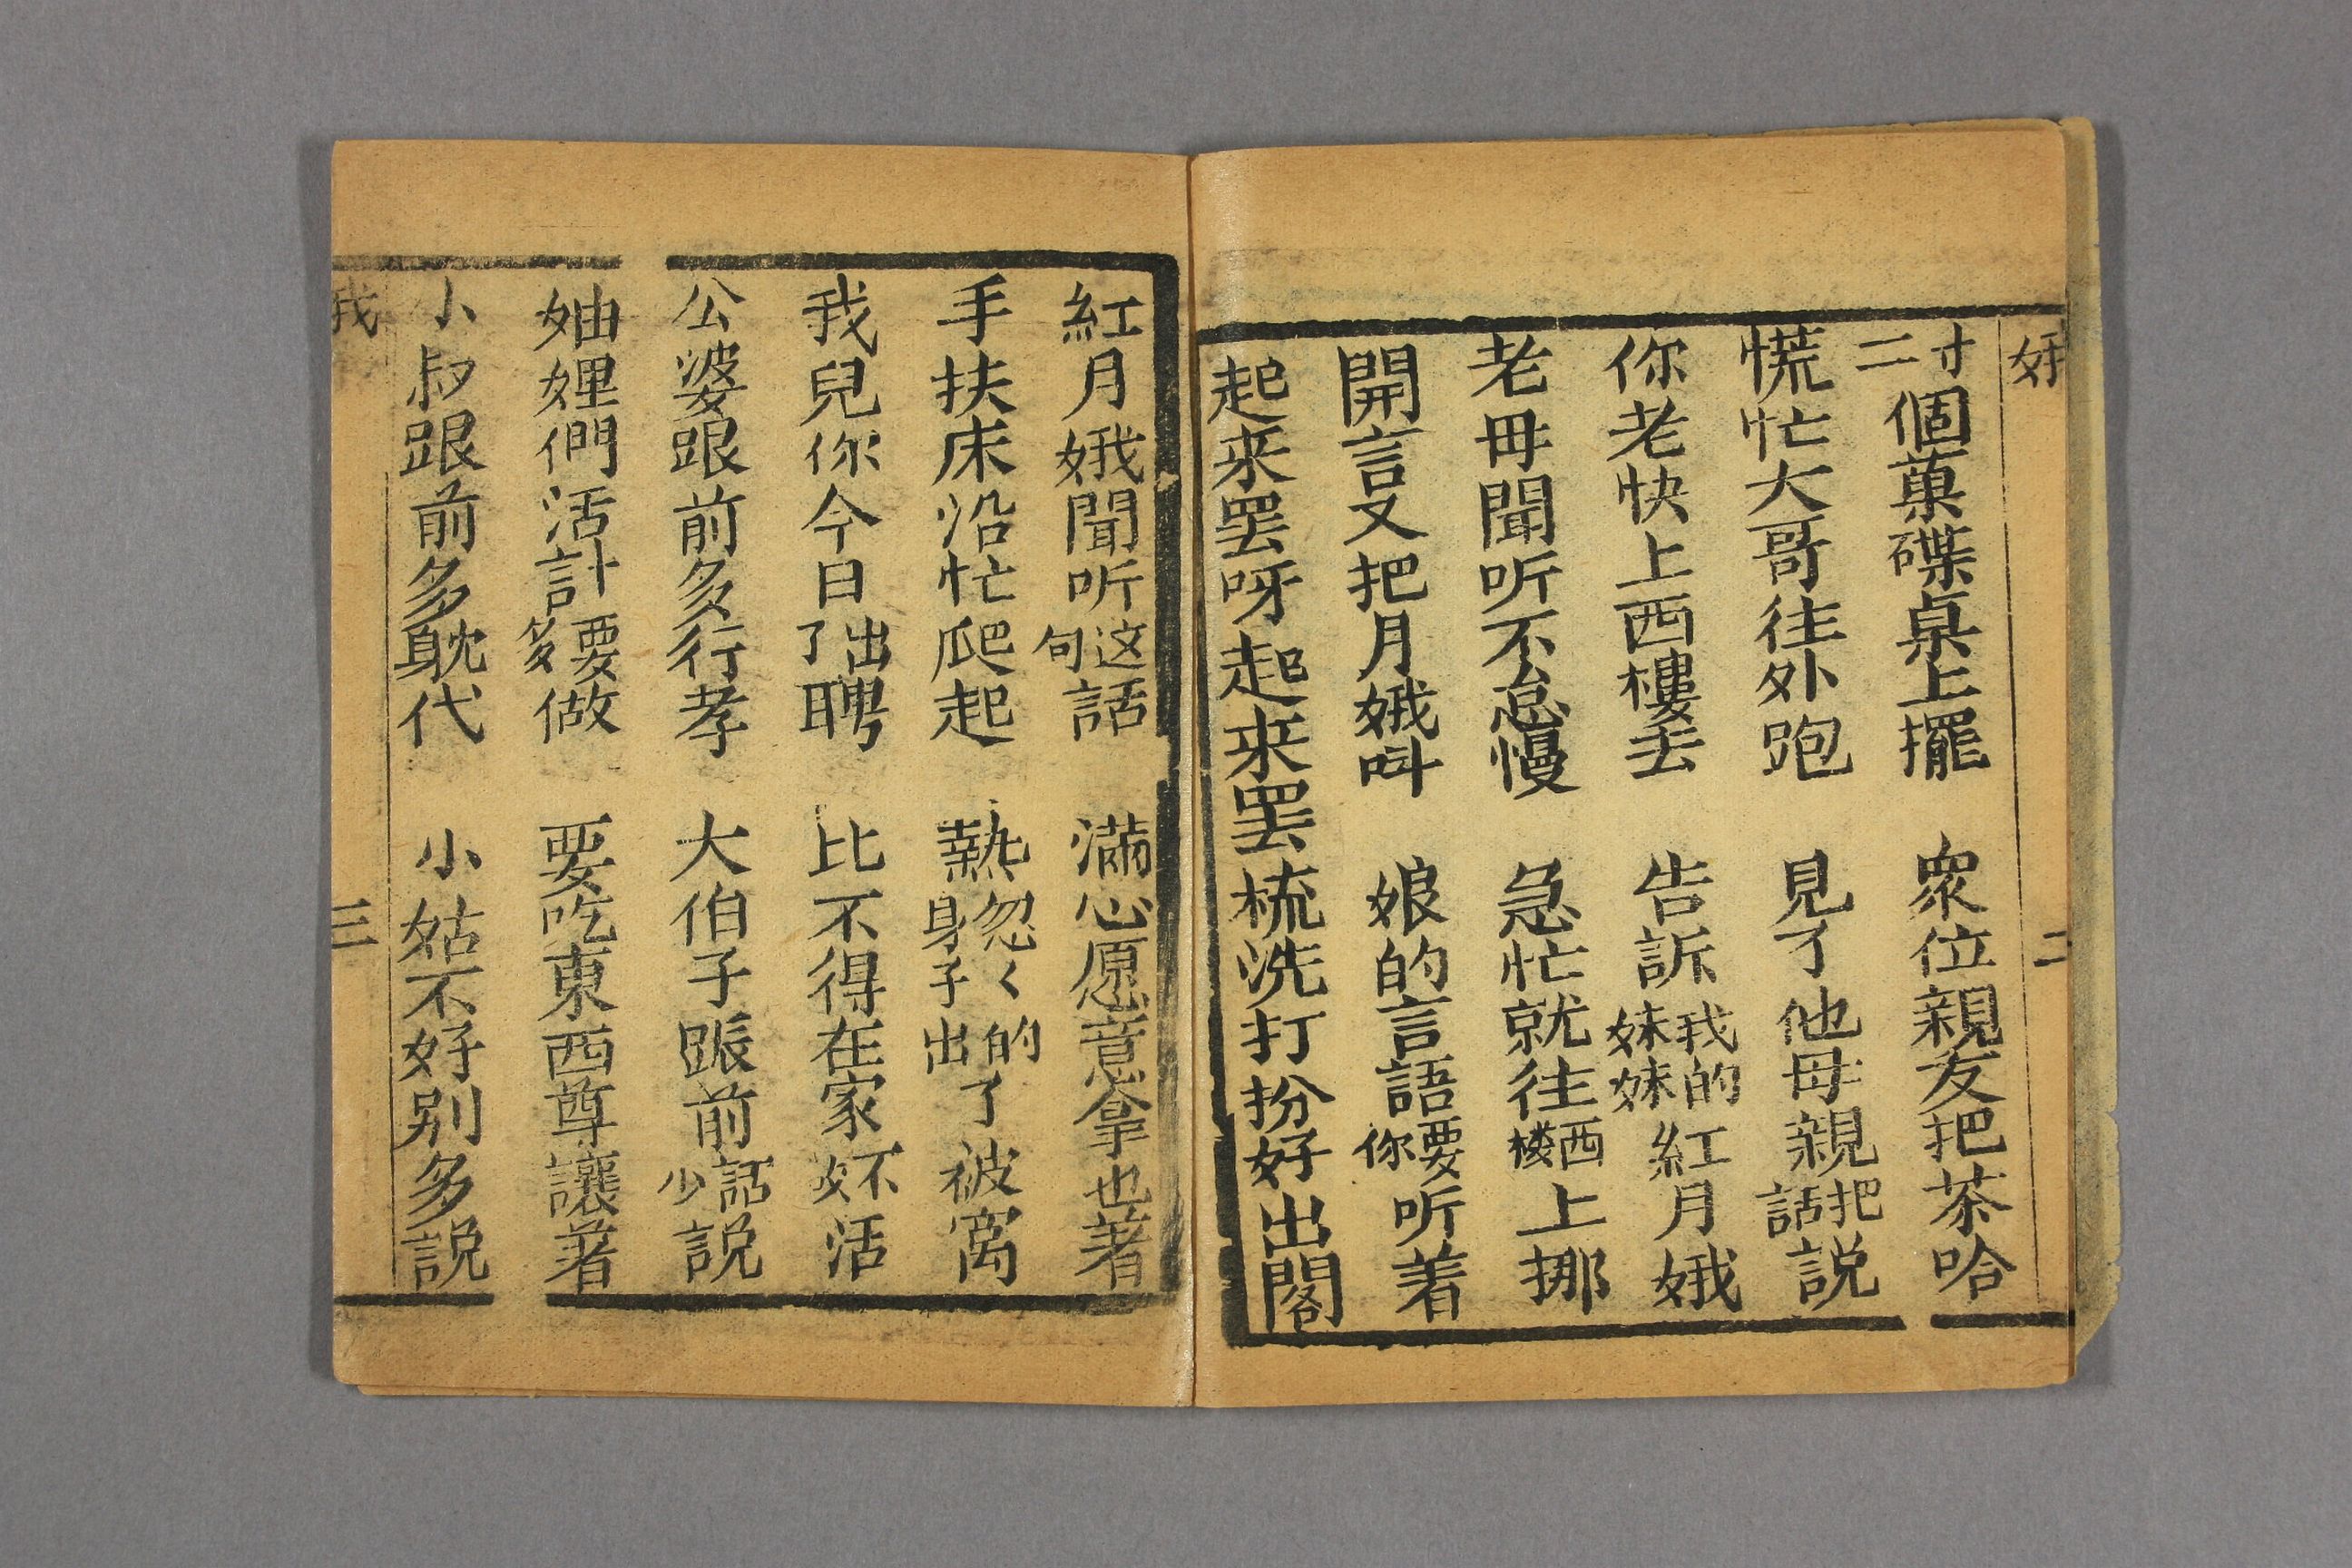 寸二個菓碟桌上擺　衆位親友把茶哈
慌忙大哥徃外跑　見了他母親把話説
你老快上西樓去　告訴我的妹妹紅月娥
老母聞听不怠慢　急忙就徃西楼上挪
開言又把月娥呌　娘的言語要你听着
起来罢呀起来罢梳洗打扮好出閣
紅月娥聞听这句話　滿心愿意拿也著
手扶床沿忙爬起　熱忽く的身子出了被窩
我兒你今日出了聘　比不得在家不好活
公婆跟前多行孝　大伯子跟前話少説
妯娌們活計要多做　要吃東西尊讓著
小叔跟前多耽代　小姑不好别多説
二
三